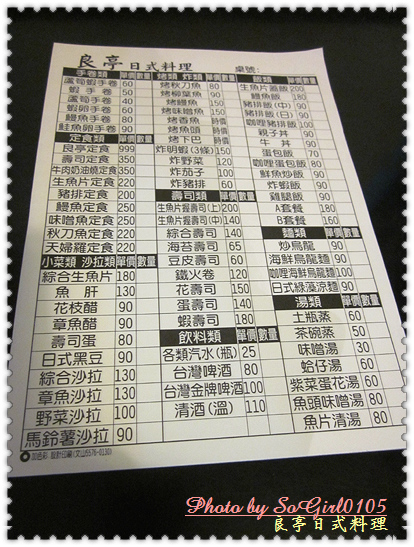 良亭日式料理 桌號:
手卷類 單價 數量
蘆筍蝦手卷 60
蝦手卷 50
蘆筍手卷 40
蝦卵手卷 60
鰻魚手卷 80
鮭魚卵手卷 90
定食類 單價 數量
良亭定食 999
壽司定食 350
牛肉奶油燒定食 350
生魚片定食 250
豬排定食 200
鰻魚定食 250
味噌魚定食 250
秋刀魚定食 220
天婦羅定食 220
小菜類 沙拉類 單價 數量
綜合生魚片 180
魚肝 130
花枝醋 90
章魚醋 90
壽司蛋 80
日式黑豆 90
綜合沙拉 130
章魚沙拉 130
野菜沙拉 100
馬鈴薯沙拉 90
烤類 炸類 單價 數量
烤秋刀魚 80
烤柳葉魚 90
烤鰻魚 150
烤味噌魚 150
烤香魚 時價
烤魚頭 時價
烤下巴 時價
炸明蝦(3條) 150
炸野菜 120
炸茄子 100
炸豬排 60
壽司類 單價 數量
生魚片握壽司(上) 200
生魚片握壽司(中) 140
綜合壽司 100
海苔壽司 65
豆皮壽司 60
鐵火卷 120
花壽司 150
蛋壽司 140
蝦壽司 180
飲料類 單價 數量
各類汽水(瓶) 25
台灣啤酒 80
台灣金牌啤酒 100
清酒(溫) 110
飯類 單價 數量
生魚片蓋飯 200
鰻魚飯 180
豬排飯(中) 90
豬排飯(日) 90
咖哩豬排飯 100
親子丼 90
牛丼 90
蛋包飯 80
咖哩蛋包飯 90
鮮魚炒飯 90
炸蝦飯 90
雞腿飯 90
A套餐 180
B套餐 160
麵類 單價 數量
炒烏龍 90
海鮮烏龍麵 100
咖哩海鮮烏龍麵 100
日式綠藻涼麵 90
湯類 單價 數量
土瓶蒸 60
茶碗蒸 30
味噌湯 30
蛤仔湯 60
紫菜蛋花湯 60
魚頭味噌湯 80
魚片清湯 80
Photo by SoGirl0105
良亭日式料理